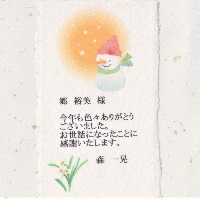 郷 裕美 様
今年も色々ありがとう
ございました。
お世話になったことに
感謝いたします。
森 一晃